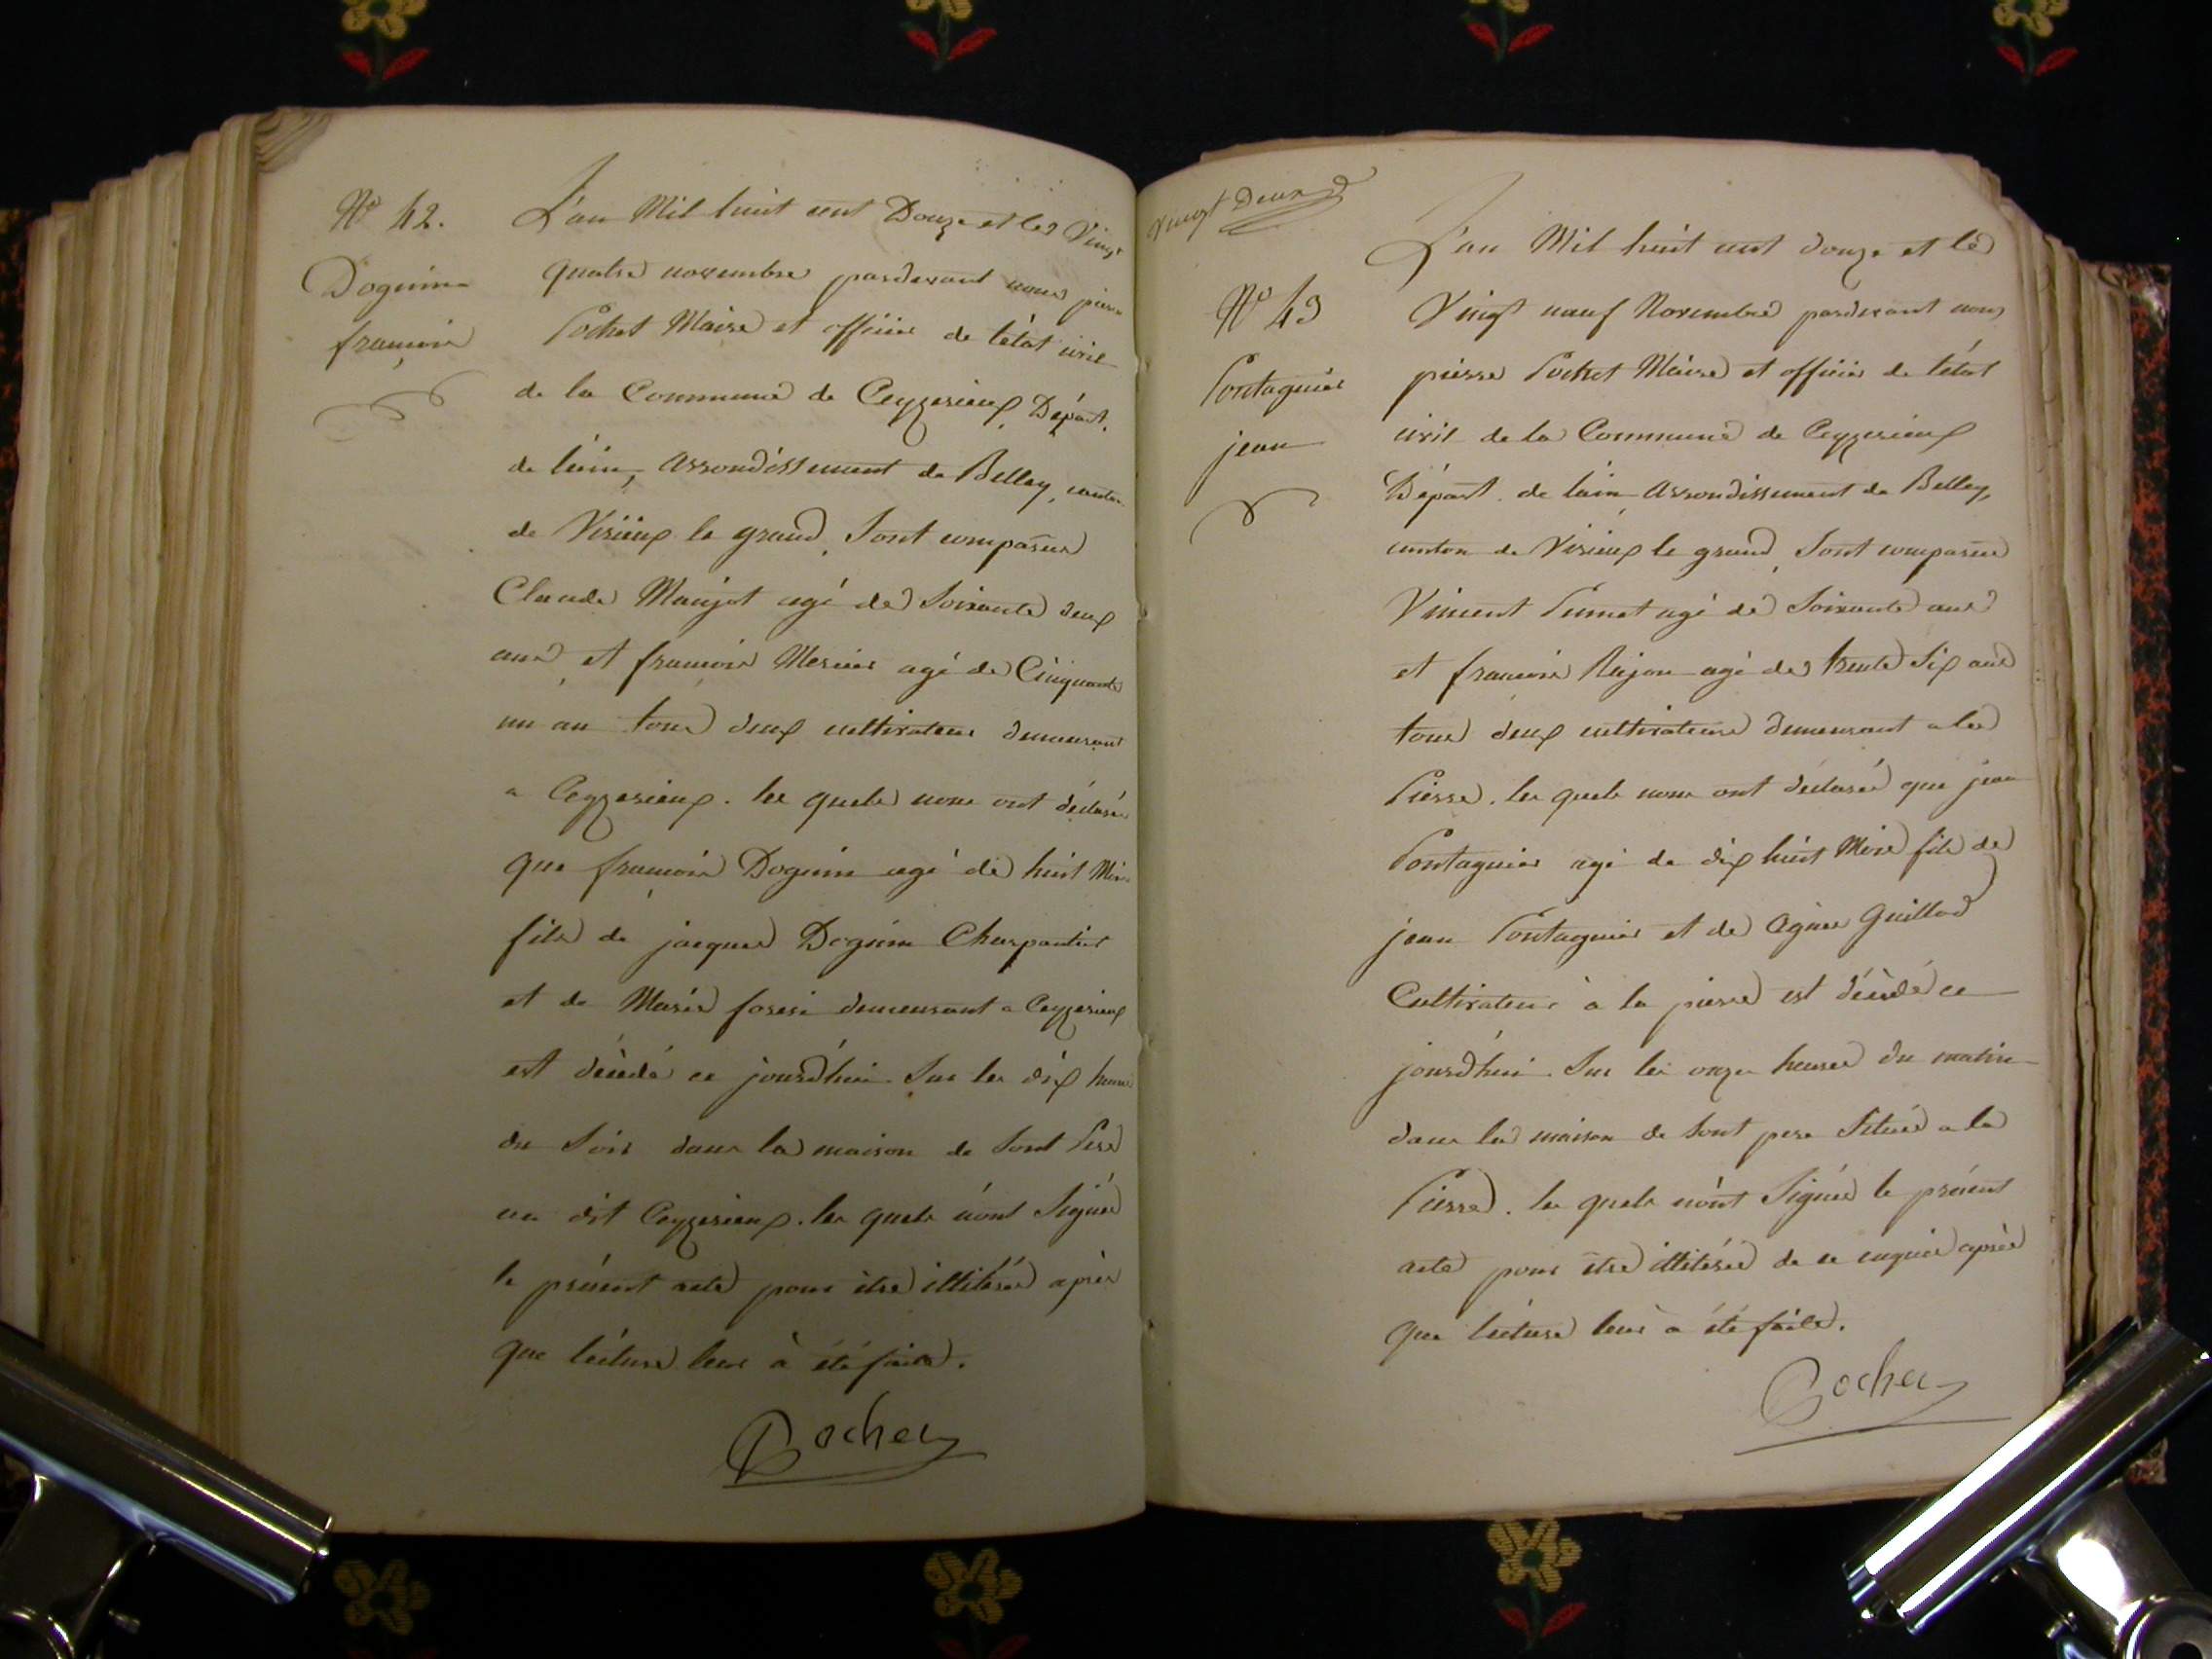 Nº 42.
Doguin
françois
L'an Mil huit cent Douze et les Vingt
quatre novembre pardevant nous pierre
Pochet Maire et officier de l'état civil
de la Commune de Ceyzerieux, Départ.
de l'ain, arrondissement de Belley, canton
de Virieux le grand, Sont comparus
Claude Manjot agé de Soixante deux
ans, et françois Mercier agé de Cinquante
un an tous deux cultivateur demeurant
a Ceyzerieux. les quels nous ont déclaré
que françois Doguin agé de huit Mois
fils de jacques Doguin Charpantier
et de Marie foresi demeurant a Ceyzerieux
est décédé ce jourd'hui Sur les dix heures
du Soir dans la maison de Sont Pere
au dit Ceyzerieux. les quels n'ont Signé
le présent acte pour être illitéré après
que lécture leur à été faite.
Pochet
Vingt Deux
Nº 43
Pontagnier
jean
L'an Mil huit cent douze et le
Vingt neuf Novembre pardevant nous
pierre Pochet Maire et officier de l'état
civil de la Commune de Ceyzerieux
Départ. de l'ain, arrondissement de Belley,
canton de Virieux le grand, Sont comparus
Vincent agé de Soixante ans
et françois agé de trente Six ans
tous deux cultivateurs demeurant a la
Pierre. les quels nous ont déclaré que jean
Pontagnier agé de dix huit Mois fils de
jean Pontagnier et de Agnes Guillod
Cultivateur à la pierre est décédé ce
jourd'hui Sur les onze heures du matin
dans la maison de Sont pere Située a la
Pierre. les quels n'ont Signé le présent
acte pour être illitéré de ce enquis après
que lécture leur à été faite.
Pochet